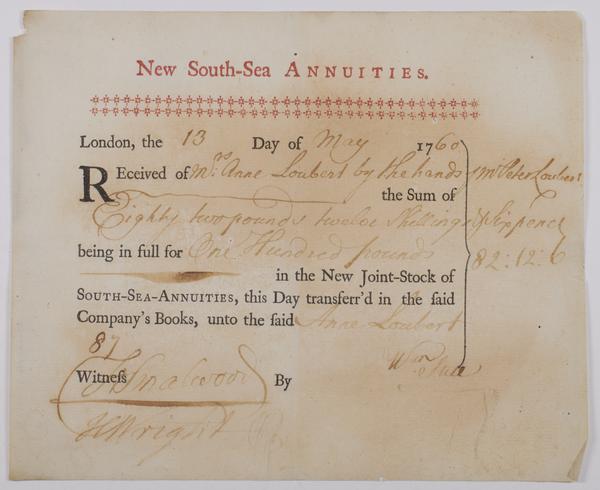 New South-Sea ANNUITIES.
London, the 13 Day of May 1760
REceived of Mrs. Anne Loubert by the hands of Mr Peter Loubert
the Sum of
Eighty two pounds twelve Shillings & Sixpence
being in full for One Hundred pounds 82:12:6
in the New Joint-Stock of
SOUTH-SEA-ANNUITIES, this Day transferr'd in the said
Company's Books, unto the said Anne Loubert
87
Witness Smalwood By Wm.
Wright